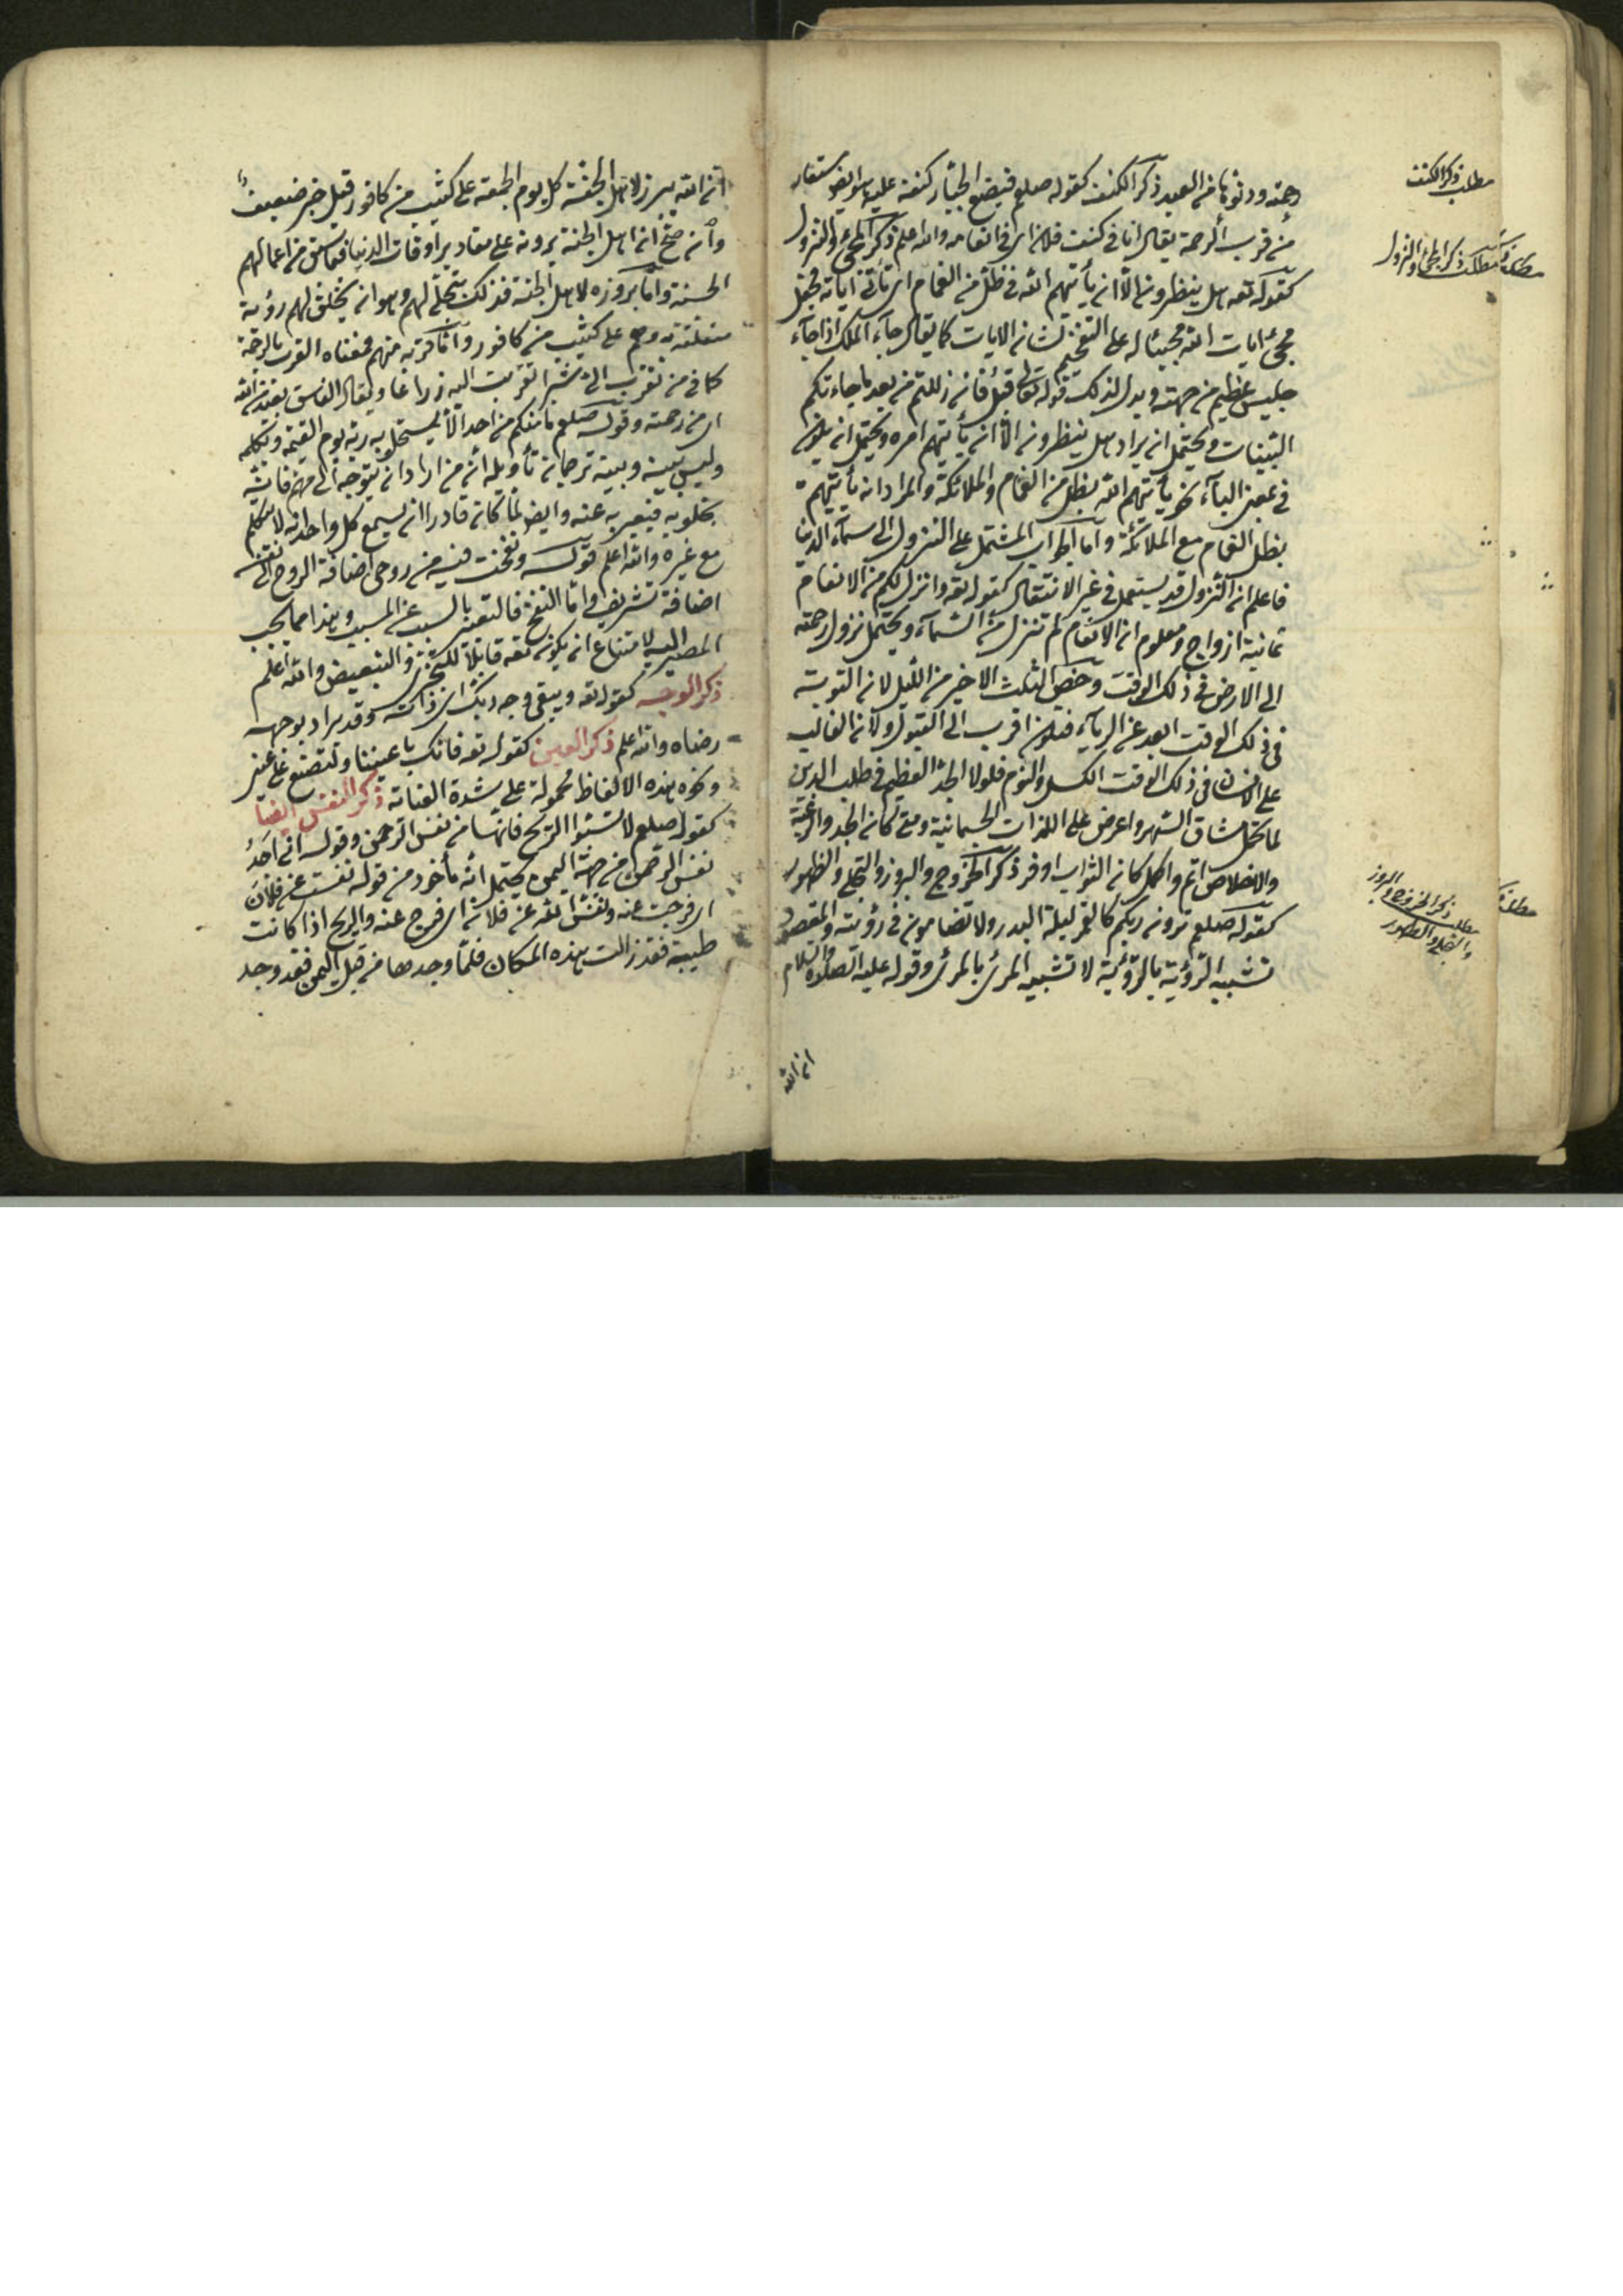 رحمته ودنوها من العبد ذكر الكنف كقوله صلعم فيضع الجبار كنفه عليه وهو ايضا مستعار
من قرب الرحمة يقال انا في كنف فلان اى في انعامه والله اعلم ذكر المجئ والنزول
كقوله تعه هل ينظرون الا ان يأتيهم الله في ظلل من الغمام اى تأتى اياته فجعل
مجئ ايات الله مجيئا له على التفخيم لشان الايات كما يقال جاء الملك اذا جاء
جليس عظيم من جهته ويدل لذلك قوله تعالى قبل فان زللتم من بعد ما جاءتكم
البينات ويحتمل ان يراد هل ينظرون الا ان يأتيهم امره ويحتمل ان يكون
في بمعنى الباء نحو يأتيهم الله بظلل من الغمام والملائكة والمراد انه يأتيهم
بظلل الغمام مع الملائكة واما الجواب المشتمل على النزول الى سماء الدنيا
فاعلم ان النزول قد يستعمل في غير الانتقال كقوله تعه وانزل لكم من الانعام
ثمانية ازواج ومعلوم ان الانعام لم تنزل من السماء ويحتمل نزول رحمته
الى الارض في ذلك الوقت وخص الثلث الاخير من الليل لان التوبة
في ذلك الوقت ابعد عن الرياء فيكون اقرب الى القبول ولان الغالب
على الانسان في ذلك الوقت الكسل والنوم فلولا الجد العظيم في طلب الدين
لما تحمل مشاق السهر واعرض على اللذات الجسمانية ومتى كان الجد والرغبة
والاخلاص اتم واكمل كان الثواب اوفر ذكر الخروج والبروز والتجلى والظهور
كقوله صلعم ترون ربكم كالقمر ليلة البدر ولا تضامون في رؤيته والمقصود
تشبيه الرؤية بالرؤية لا تشبيه المرئ بالمرئ وقوله عليه الصلاة والسلام
ان الله
مطلب ذكر الكنف
مطلب ذكر المجئ والنزول
مطلب ذكر الخروج والبروز
والتجلى والظهور
ان الله يبرز لاهل الجنة كل يوم الجمعة على كثيب من كافور قيل خبر ضعيف
وان صح ان اهل الجنة يرونه على مقادير اوقات الدنيا فيما سبق من اعمالهم
الحسنة واما بروزه لاهل الجنة فذلك تجلى لهم وهو انه يخلق لهم رؤية
متعلقة به وهم على كثيب من كافور واما قربه منهم فمعناه القرب بالرحمة
كما في من تقرب الى شبرا تقربت اليه ذراعا ويقال الفاسق بعيد من الله
اى من رحمته وقوله صلعم ما منكم من احد الا يستخلو به ربه يوم القيمة ويكلمه
وليس بينه وبينه ترجمان تأويله انه من اراد ان يتوجه الى مهم فانه
يخلو به فيعبر به عنه وايضا لما كان قادرا ان يسمع كل واحد انه لا يتكلم
مع غيره والله اعلم قوله ونفخت فيه من روحى اضافة الروح الى نفسه
اضافة تشريف واما النفخ فالتعبير بالسبب عن المسبب وهذا مما يجب
المصير اليه لامتناع ان يكون تعه قابلا للتجزى والتبعيض والله اعلم
ذكر الوجه كقوله تعه ويبقى وجه ربك اى ذاته وقد يراد بوجهه
رضاه والله اعلم ذكر العين كقوله تعه فانك باعيننا ولتصنع على عينى
ونحوه هذه الالفاظ محمولة على شدة العناية ذكر النفس ايضا
كقوله صلعم لا تسبوا الريح فانها من نفس الرحمن وقوله انى اجد
نفس الرحمن من جهة اليمن يحتمل انه مأخوذ من قوله نفست عن فلان
اى فرجت عنه ونفس الله عن فلان اى فرج عنه والريح اذا كانت
طيبة فقد زالت هذه المكان فلما وجدها من قبل اليمن فقد وجد